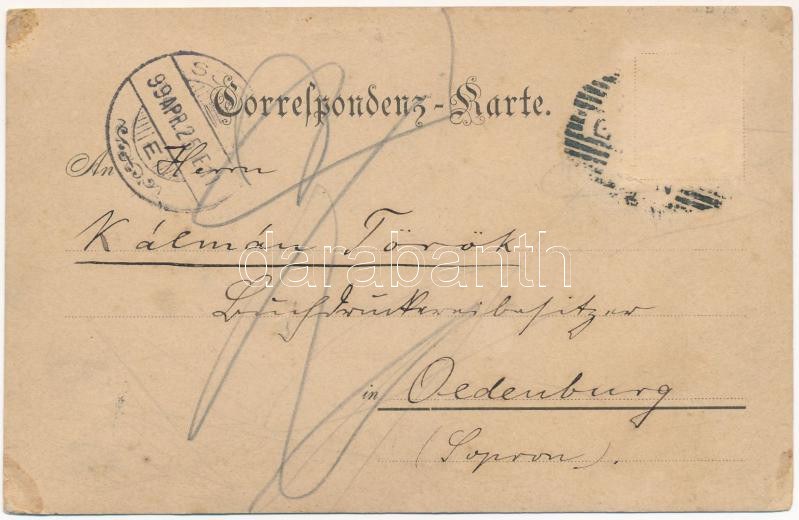 Correspondenz-Karte.
99 APR. 2
E
An Herrn
Kálmán Török
darabanth
Buchdruckereibesitzer
in Oedenburg
(Sopron).